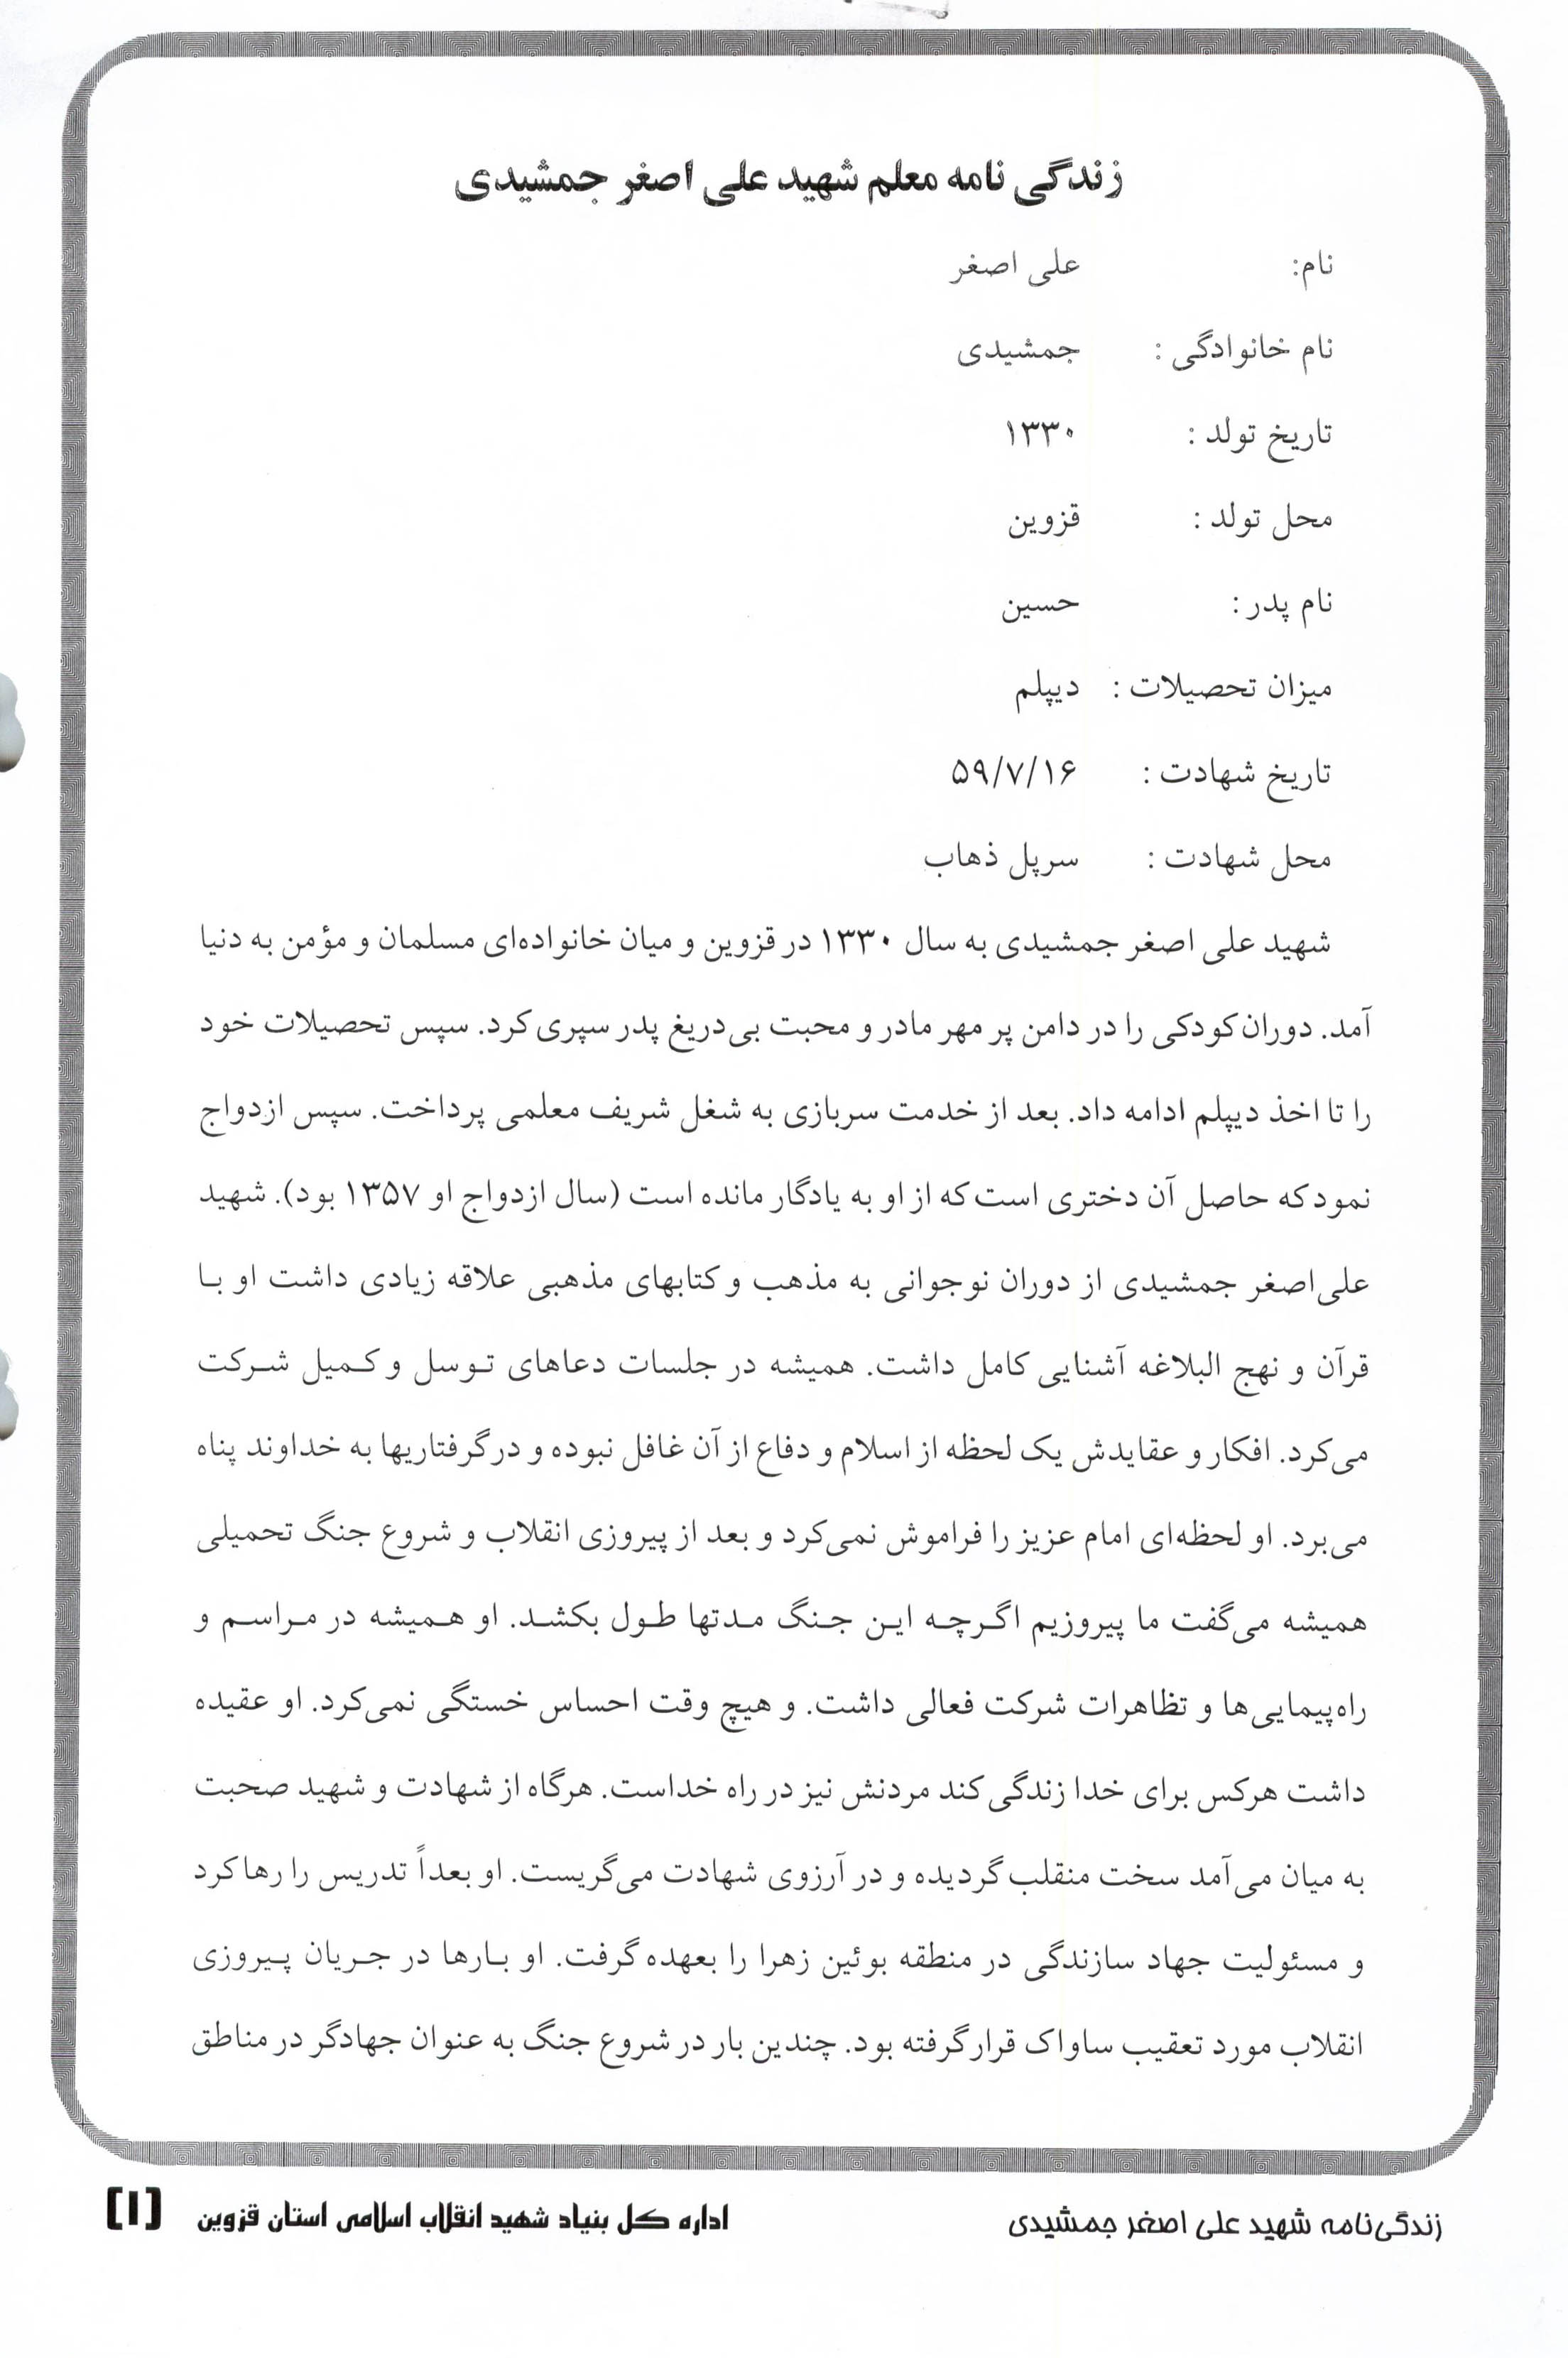 زندگی نامه معلم شهید علی اصغر جمشیدی
نام: علی اصغر
نام خانوادگی : جمشیدی
تاریخ تولد : ۱۳۳۰
محل تولد : قزوین
نام پدر : حسین
میزان تحصیلات : دیپلم
تاریخ شهادت : ۵۹/۷/۱۶
محل شهادت : سرپل ذهاب
شهید علی اصغر جمشیدی به سال ۱۳۳۰ در قزوین و میان خانواده‌ای مسلمان و مؤمن به دنیا
آمد. دوران کودکی را در دامن پر مهر مادر و محبت بی‌دریغ پدر سپری کرد. سپس تحصیلات خود
را تا اخذ دیپلم ادامه داد. بعد از خدمت سربازی به شغل شریف معلمی پرداخت. سپس ازدواج
نمود که حاصل آن دختری است که از او به یادگار مانده است (سال ازدواج او ۱۳۵۷ بود). شهید
علی‌اصغر جمشیدی از دوران نوجوانی به مذهب و کتابهای مذهبی علاقه زیادی داشت او با
قرآن و نهج البلاغه آشنایی کامل داشت. همیشه در جلسات دعاهای توسل و کمیل شرکت
می‌کرد. افکار و عقایدش یک لحظه از اسلام و دفاع از آن غافل نبوده و در گرفتاریها به خداوند پناه
می‌برد. او لحظه‌ای امام عزیز را فراموش نمی‌کرد و بعد از پیروزی انقلاب و شروع جنگ تحمیلی
همیشه می‌گفت ما پیروزیم اگرچه این جنگ مدتها طول بکشد. او همیشه در مراسم و
راه‌پیمایی‌ها و تظاهرات شرکت فعالی داشت. و هیچ وقت احساس خستگی نمی‌کرد. او عقیده
داشت هرکس برای خدا زندگی کند مردنش نیز در راه خداست. هرگاه از شهادت و شهید صحبت
به میان می‌آمد سخت منقلب گردیده و در آرزوی شهادت می‌گریست. او بعداً تدریس را رها کرد
و مسئولیت جهاد سازندگی در منطقه بوئین زهرا را بعهده گرفت. او بارها در جریان پیروزی
انقلاب مورد تعقیب ساواک قرار گرفته بود. چندین بار در شروع جنگ به عنوان جهادگر در مناطق
زندگی‌نامه شهید علی اصغر جمشیدی اداره کل بنیاد شهید انقلاب اسلامی استان قزوین [۱]